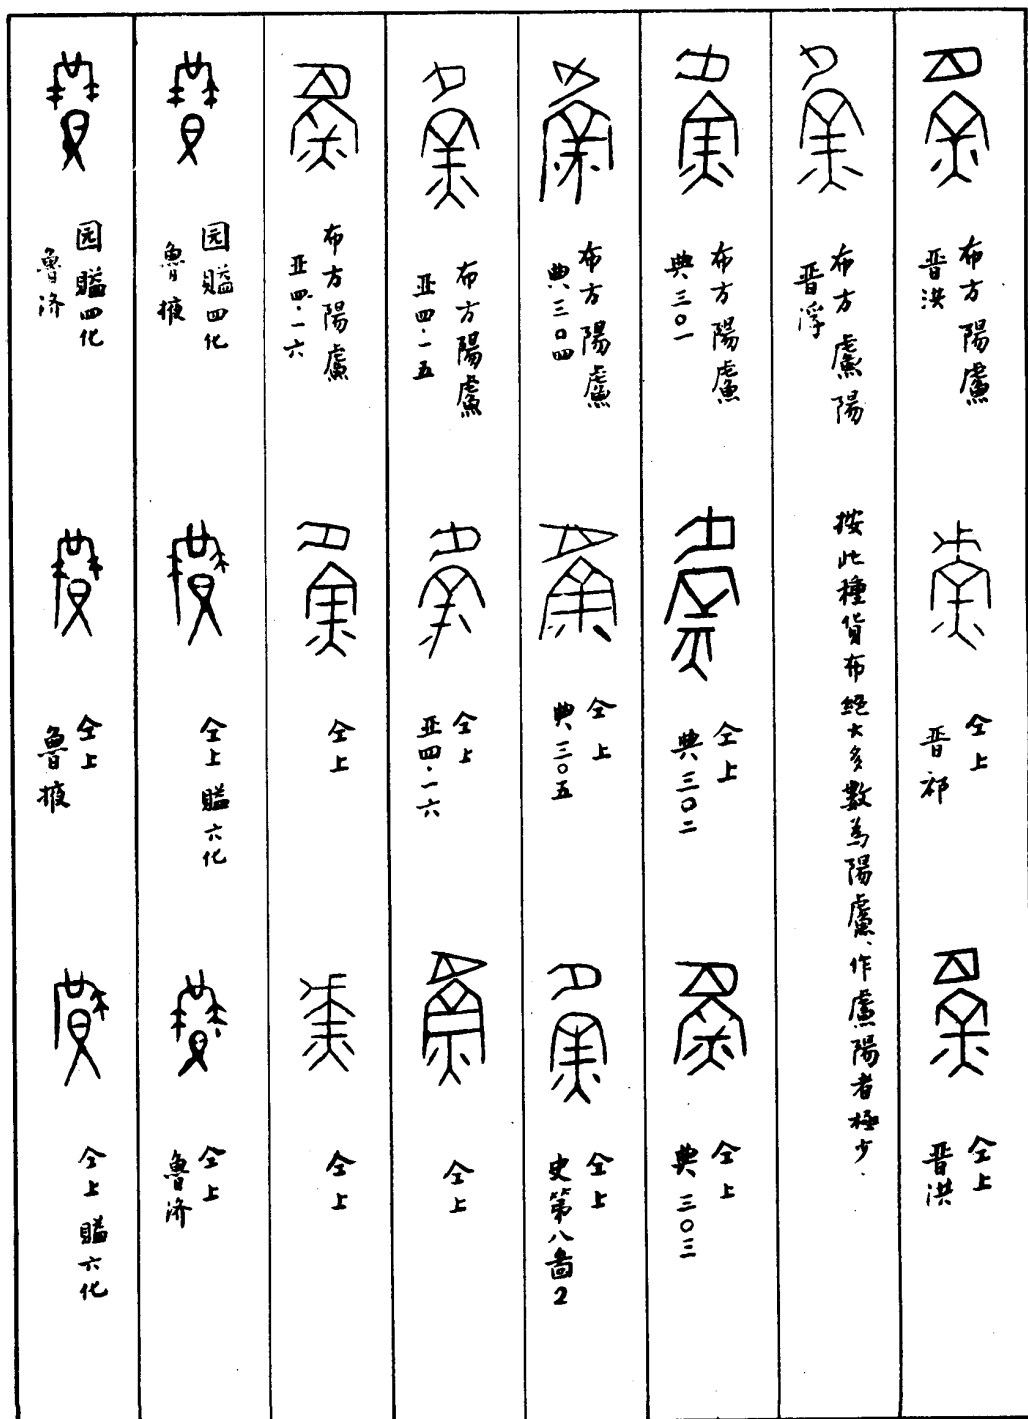 布方陽𫊣
晋洪
仝上
晋祁
仝上
晋洪
布方𫊣陽
晋浮
按此種貨布絕大多數為陽𫊣、作𫊣陽者極少.
布方陽𫊣
典三〇一
仝上
典三〇二
仝上
典三〇三
布方陽𫊣
典三〇四
仝上
典三〇五
仝上
史第八啚2
布方陽𫊣
亚四·一五
仝上
亚四·一六
仝上
布方陽𫊣
亚四·一六
仝上
仝上
园賹四化
魯掖
仝上賹六化
仝上
魯济
园賹四化
魯济
仝上
魯掖
仝上賹六化